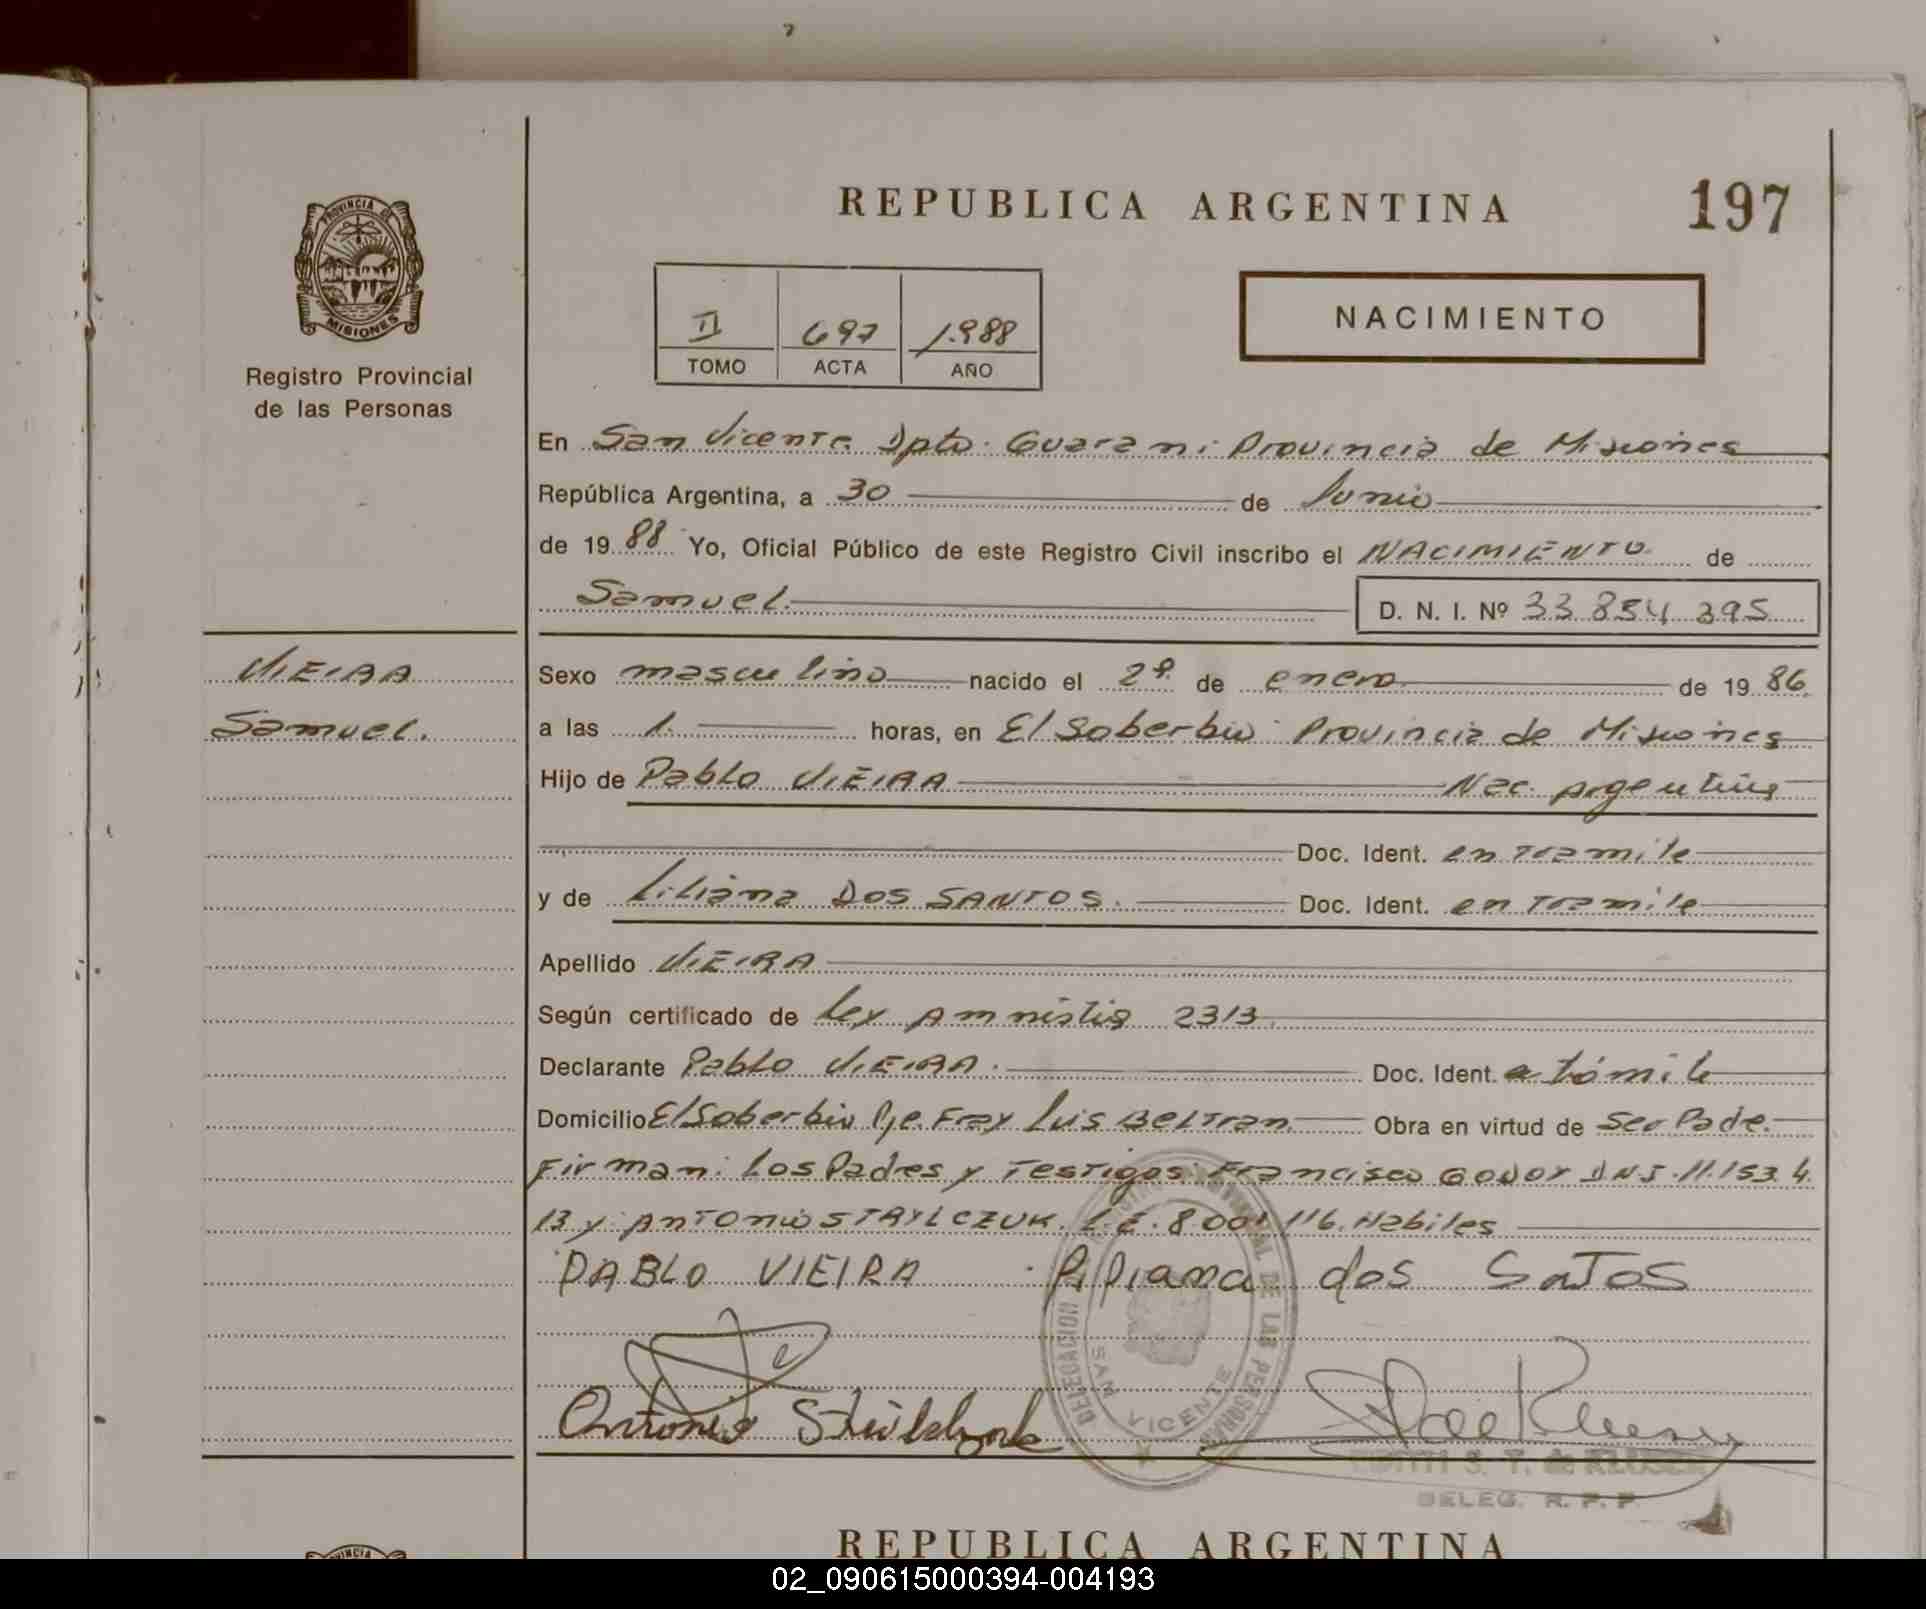 REPUBLICA ARGENTINA
197
PROVINCIA DE
MISIONES
Registro Provincial
de las Personas
II 697 1.988
TOMO ACTA AÑO
NACIMIENTO
En San Vicente. Dpto. Guarani Provincia de Misiones
República Argentina, a 30 de Junio
de 1988 Yo, Oficial Público de este Registro Civil inscribo el NACIMIENTO. de
Samuel. D. N. I. Nº 33 854 395
VIEIRA
Samuel.
Sexo masculino nacido el de enero de 1986.
a las 1. horas, en El Soberbio Provincia de Misiones
Hijo de Pablo VIEIRA Nac. Argentina
Doc. Ident. en tramite
y de Liliana DOS SANTOS. Doc. Ident. en tramite
Apellido VIEIRA
Según certificado de Ley Amnistia 2313
Declarante Pablo VIEIRA. Doc. Ident.
Domicilio El Soberbio Fray Luis Beltran. Obra en virtud de Ser Padre.
Firman: Los Padres y Testigos: Francisco GODOY DNI. 11.153.4
13 y ANTONIO STAYLCZUK. L.E. 8.001.116. Habiles
PABLO VIEIRA Pipiana dos SaTos
Antonio
DELEGACION DE LAS PERSONAS
SAN VICENTE
S. T. de KLUSER
DELEG. R. P. P.
REPUBLICA ARGENTINA
02_090615000394-004193